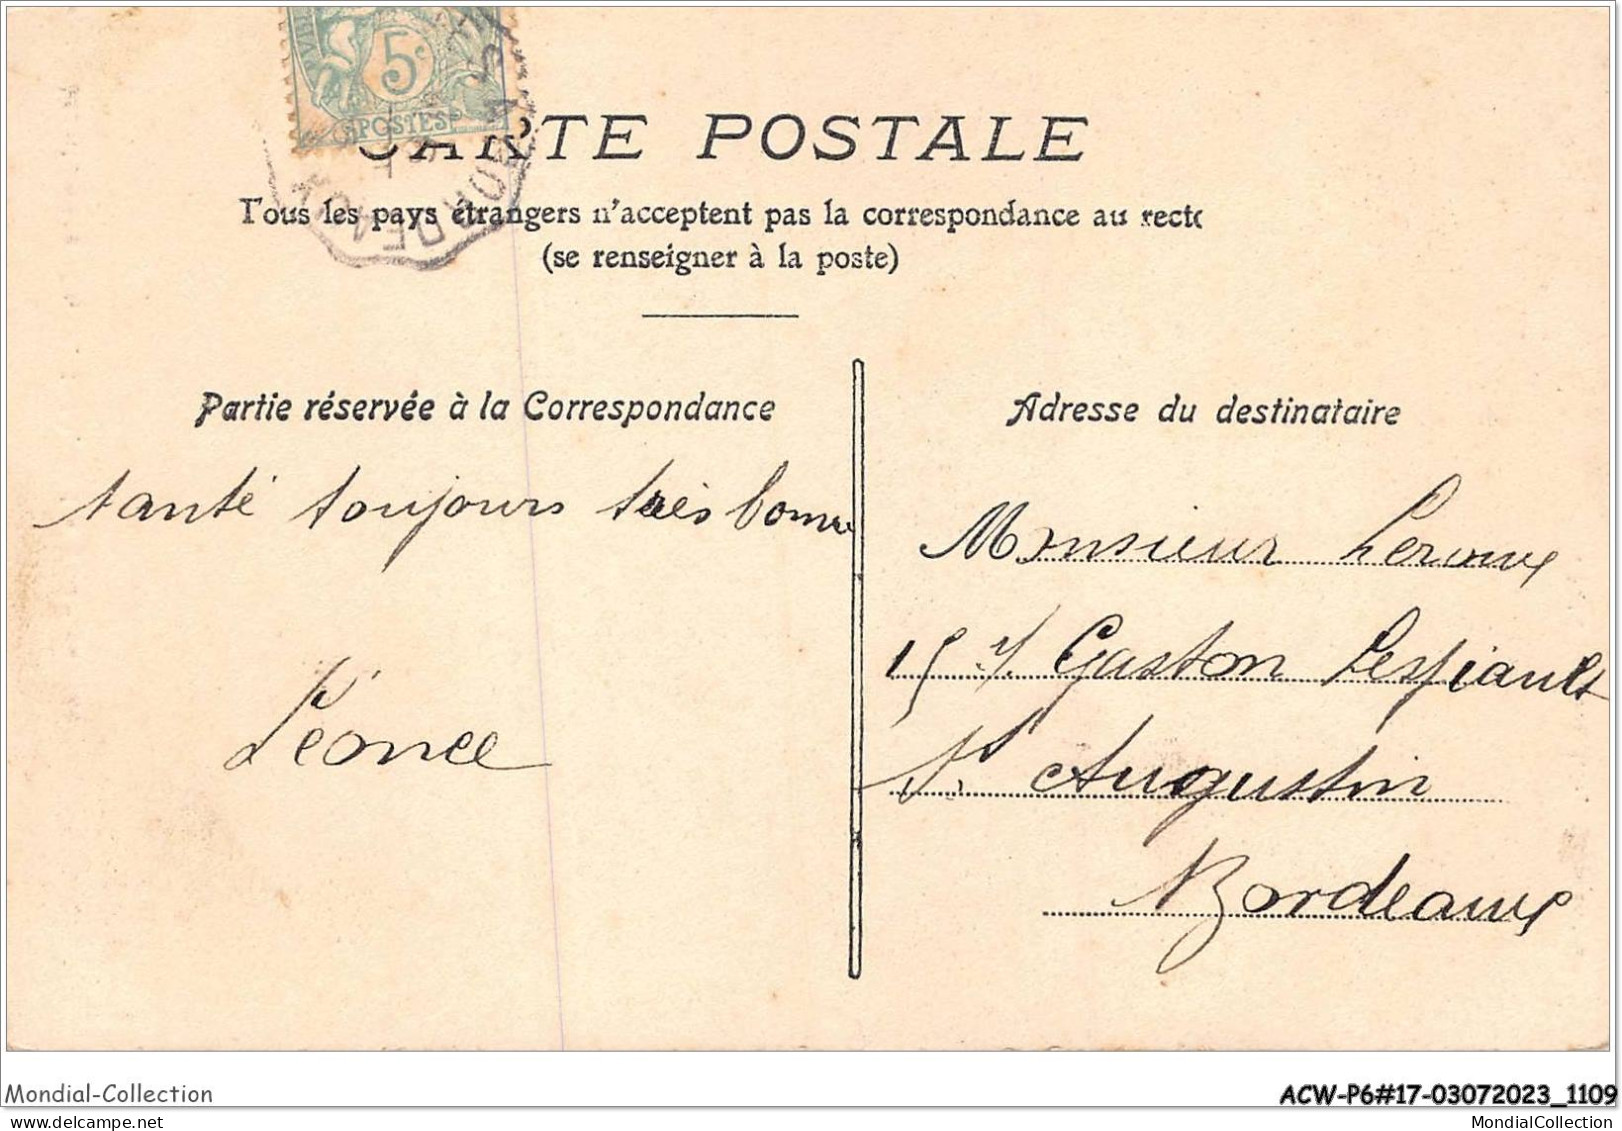 5c
POSTES
CARTE POSTALE
Tous les pays étrangers n'acceptent pas la correspondance au recto
(se renseigner à la poste)
Partie réservée à la Correspondance
santé toujours très bonne
Léonce
Adresse du destinataire
Monsieur Leroux
15 r. Gaston Lespiault
St Augustin
Bordeaux
Mondial-Collection
ACW-P6#17-03072023_1109
MondialCollection
MondialCollection